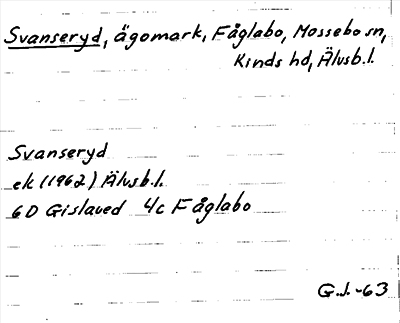 Svanseryd, ägomark, Fåglabo, Mossebo sn,
Kinds hd, Älvsb.l.
Svanseryd
ek (1962) Älvsb.l.
6D Gislaved 4c Fåglabo
G.J.-63